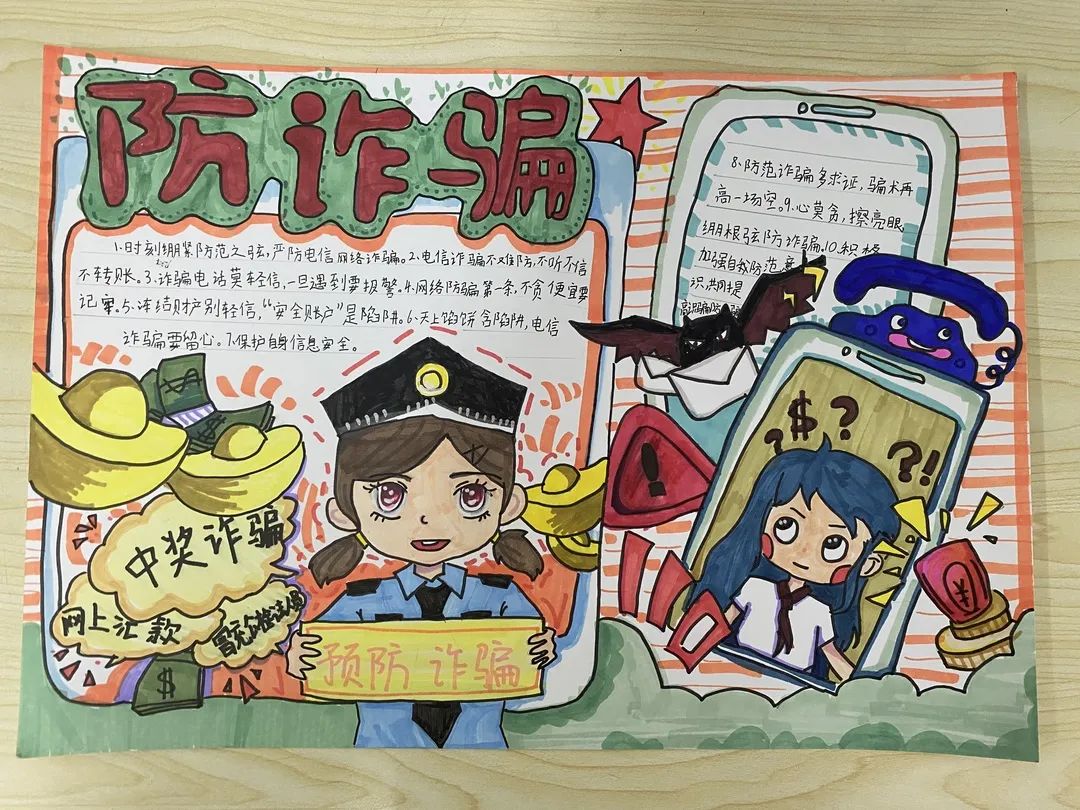 防诈骗
1.时刻绷紧防范之弦,严防电信网络诈骗。2.电信诈骗不难防,不听不信
不转账。3.诈骗电话莫轻信,一旦遇到要报警。4.网络防骗第一条,不贪便宜要
记牢。5.冻结财产别轻信,“安全账户”是陷阱。6.天上馅饼含陷阱,电信
诈骗要留心。7.保护自身信息安全。
8.防范诈骗多求证,骗术再
高一场空。9.心莫贪,擦亮眼
绷根弦防诈骗.10.积极
加强自我防范意
识,共同提
高识骗防骗
中奖诈骗
网上汇款
冒充
$
预防诈骗
!
? $ ?
?!
¥